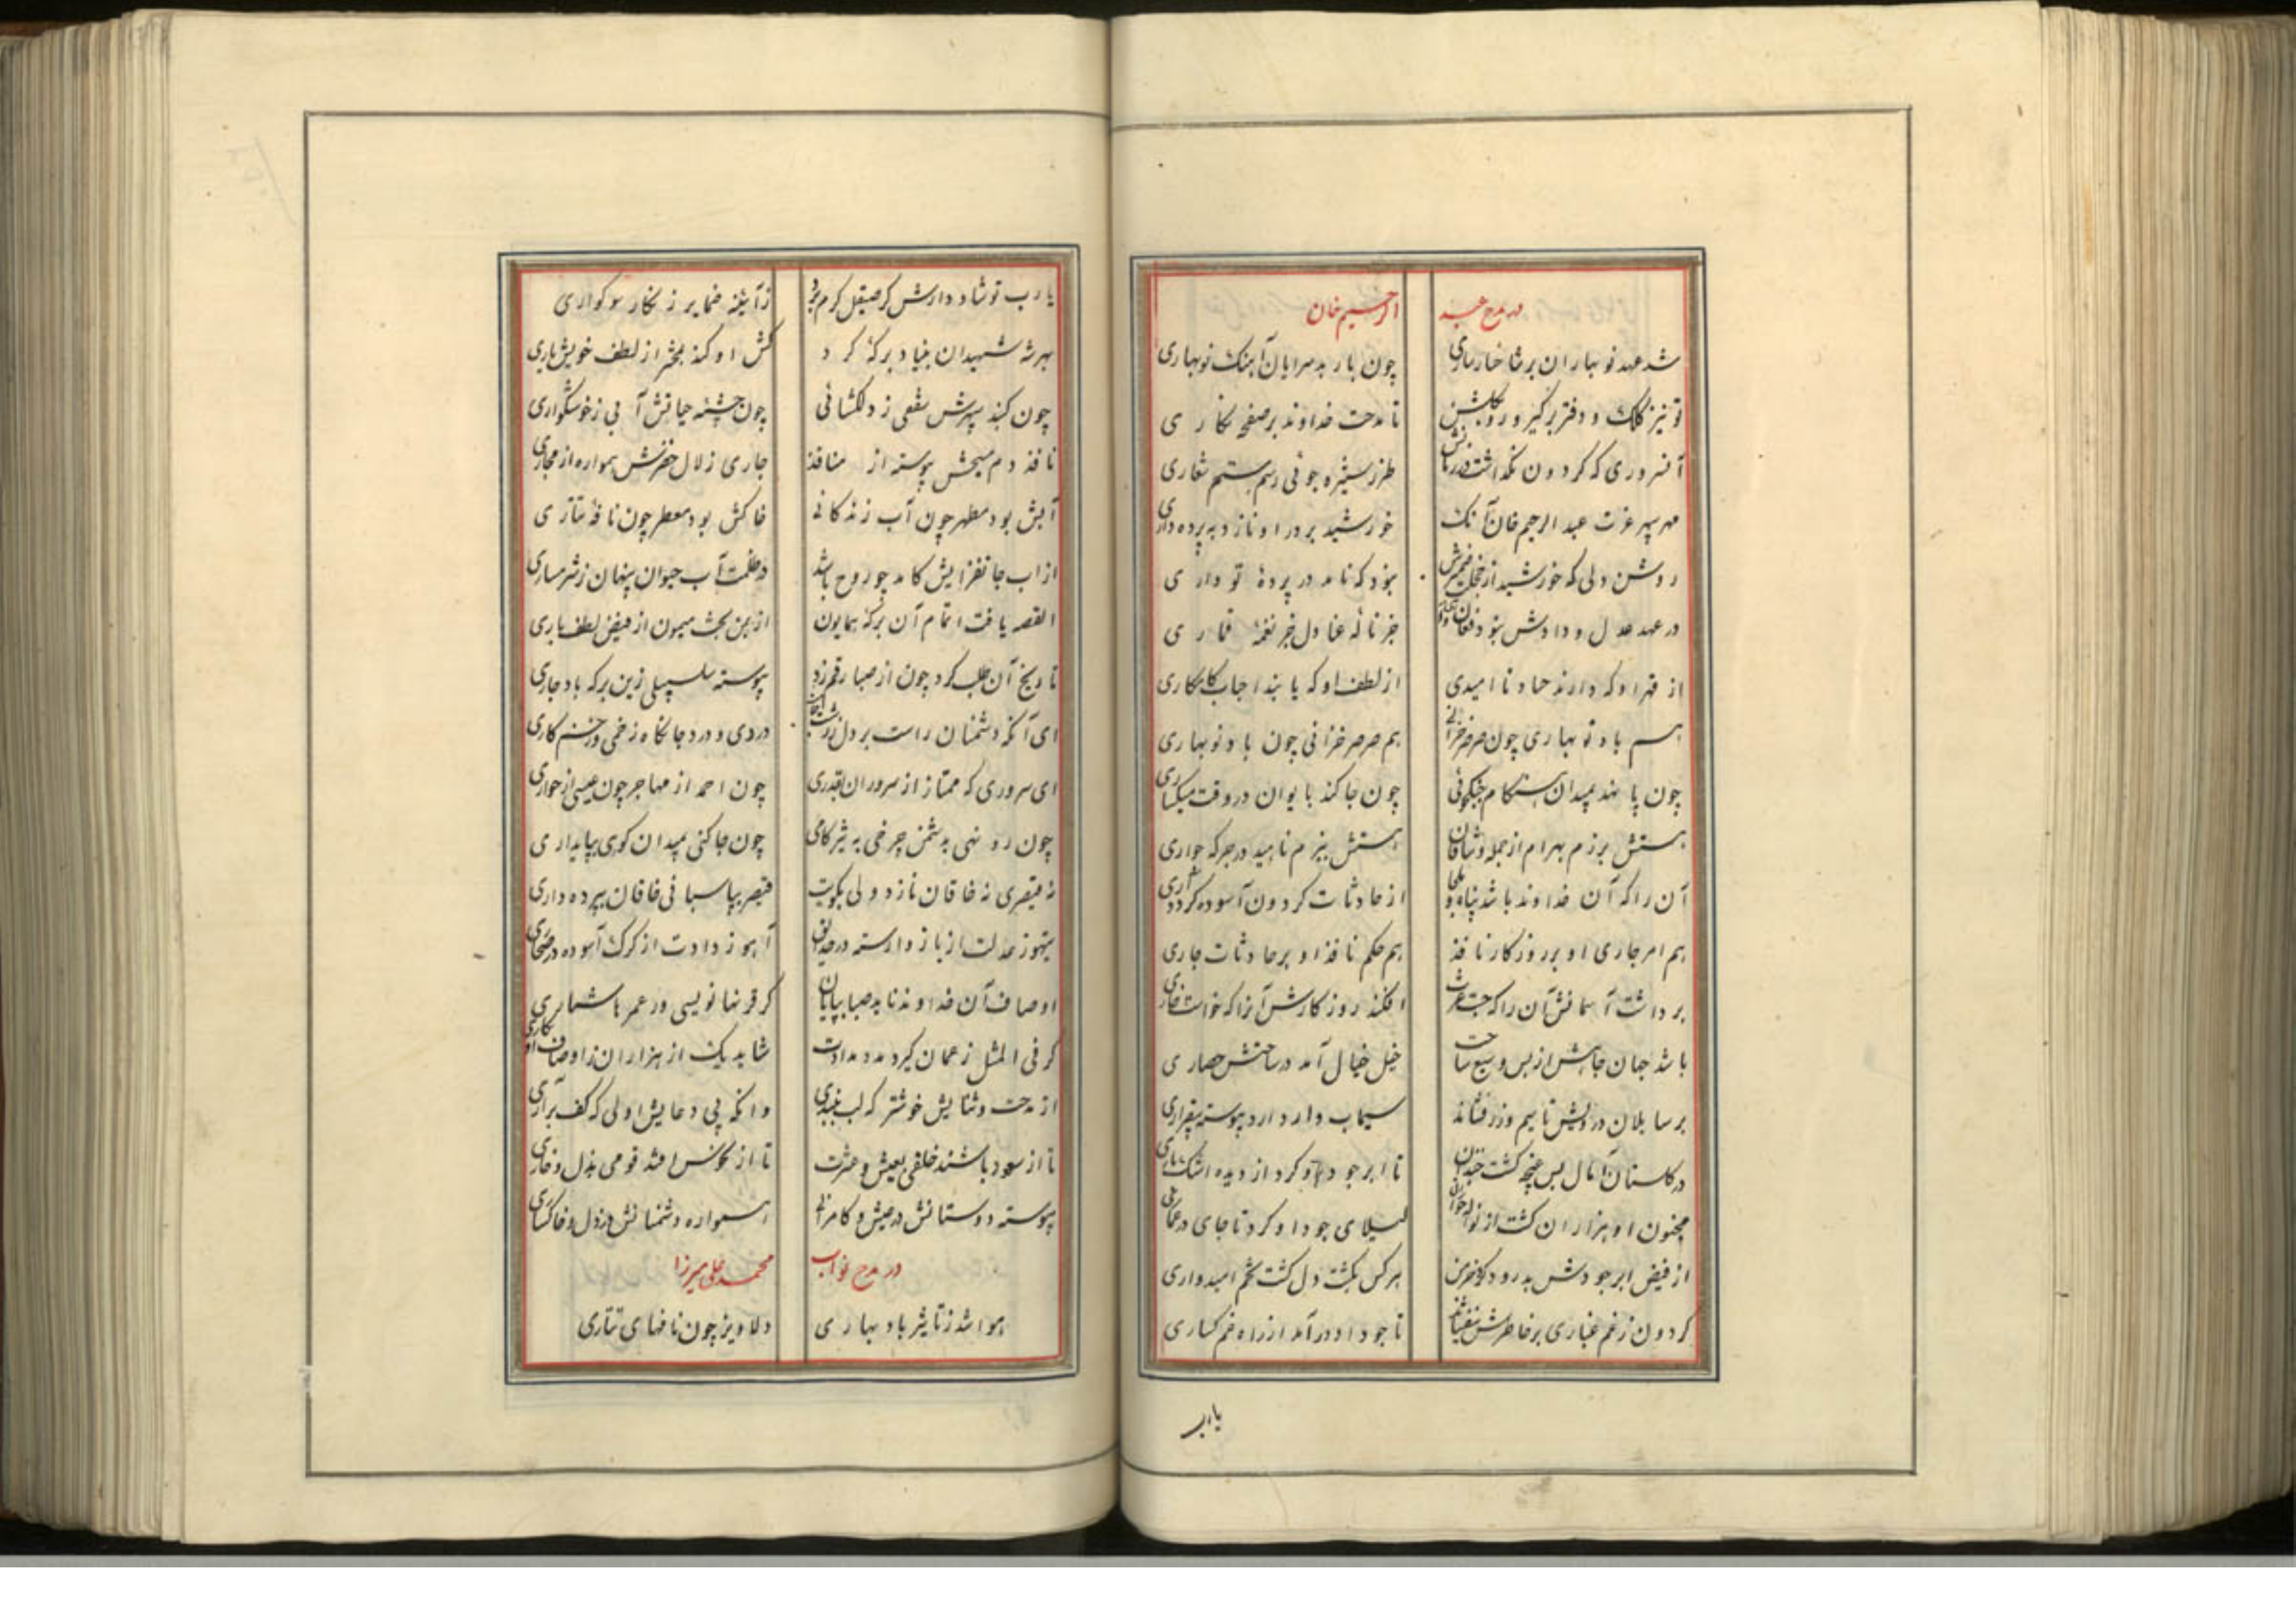 در مدح عبد الرحیم خان
شد عهد نوبهاران بر شاخسار ساری چون باربد سرایان آهنگ نوبهاری
تو نیز کلک و دفتر برگیر و رو بگلشن تا مدحت خداوند بر صفحه نگاری
آنسروری که کردون نگذاشت در زمانش طرز ستیزه جوئی رسم ستم شعاری
مهر سپهر عزت عبد الرحیم خان آنک خورشید بر در او نازد به پرده داری
روشن دلی که خورشید از خجلت ضمیرش نبود که نامد در پرده تواری
در عهد عدل و دادش نبود فغان جز ناله عنادل جز نغمه قماری
از قهر او که دارند حساد ناامیدی از لطف او که یابند احباب کامکاری
هم باد نوبهاری چون صرصر خزانی هم صرصر خزانی چون باد نوبهاری
چون پا نهد بمیدان هنگام جنگجوئی چون جا کند بایوان در وقت میگساری
هستش برزم بهرام از جمله وشاقان هستش ببزم ناهید در جرگه جواری
آن را که آن خداوند باشد پناه و ملجا از حادثات کردون آسوده کردد آری
هم امر جاری او بر روزکار نافذ هم حکم نافذ او بر حادثات جاری
برداشت آسمانش آن را که جست عزت افکند روزکارش آنرا که خواست خواری
باشد جهان جاهش از بس وسیع ساحت خیل خیال آمد در ساحتش حصاری
بر سایلان در ویش تا سیم و زر فشاند سیماب وار دارد پیوسته بیقراری
در کلستان آمال بس غنچه کشت خندان تا ابر جود او کرد از دیده اشک باری
مجنون او هزاران کشت از لیلای جود او کرد تا جای در عماری
از فیض ابر جودش بدرود هر کس بکشت دل کشت تخم امیدواری
کردون ز غم غباری بر خاطرش تا جود او درآمد از راه غمکساری
یارب
یارب تو شاد دارش کز صیقل کرم برد ز آئینه ضمایر زنکار سوکواری
بهر شه شهیدان بنیاد برکه کرد کش او کند بمحشر از لطف خویش یاری
چون کنبد سپهرش سقفی ز دلکشائی چون چشمه حیاتش آبی ز خوشکواری
نافذ دم مسیحش پیوسته از منافذ جاری زلال خضرش همواره از مجاری
آبش بود مطهر چون آب زندکانی خاکش بود معطر چون نافه تتاری
از آب جانفزایش کامد چو روح باشد در ظلمت آب حیوان پنهان ز شرمساری
القصه یافت اتمام آن برکه همایون از یمن بخت میمون از فیض لطف باری
تاریخ آن طلب کرد چون از صبا رقم زد پیوسته سلسبیلی زین برکه باد جاری
ای آنکه دشمنان راست بر دل دردی و درد جانکاه زخمی و زخم کاری
ای سروری که ممتاز از سروران بقدری چون احمد از مهاجر چون عیسی از حواری
چون رو نهی بدشمن چرخی به تیزکامی چون جا کنی بمیدان کوهی بپایداری
نه قیصری نه خاقان نازد ولی بکویت قیصر بپاسبانی خاقان بپرده داری
تیهو ز عدلت از باز وارسته در حدایق آهو ز دادت از کرک آسوده در صحاری
اوصاف آن خداوند ناید صبا بپایان کر قرنها نویسی ور عمرها شماری
کر فی المثل ز عمان کیرد مدد مدادت شاید یک از هزاران ز اوصاف او نکاری
از مدحت و ثنایش خوشتر که لب ببندی وانکه پی دعایش اولی که کف برآری
تا از سعود باشند خلقی بعیش و عشرت تا از نحوس افتد قومی بذل و خواری
پیوسته دوستانش در عیش و کامرانی همواره دشمنانش در ذل و خاکساری
در مدح نواب محمد علی میرزا
هوا شد ز تاثیر باد بهاری دلاویز چون نافهای تتاری